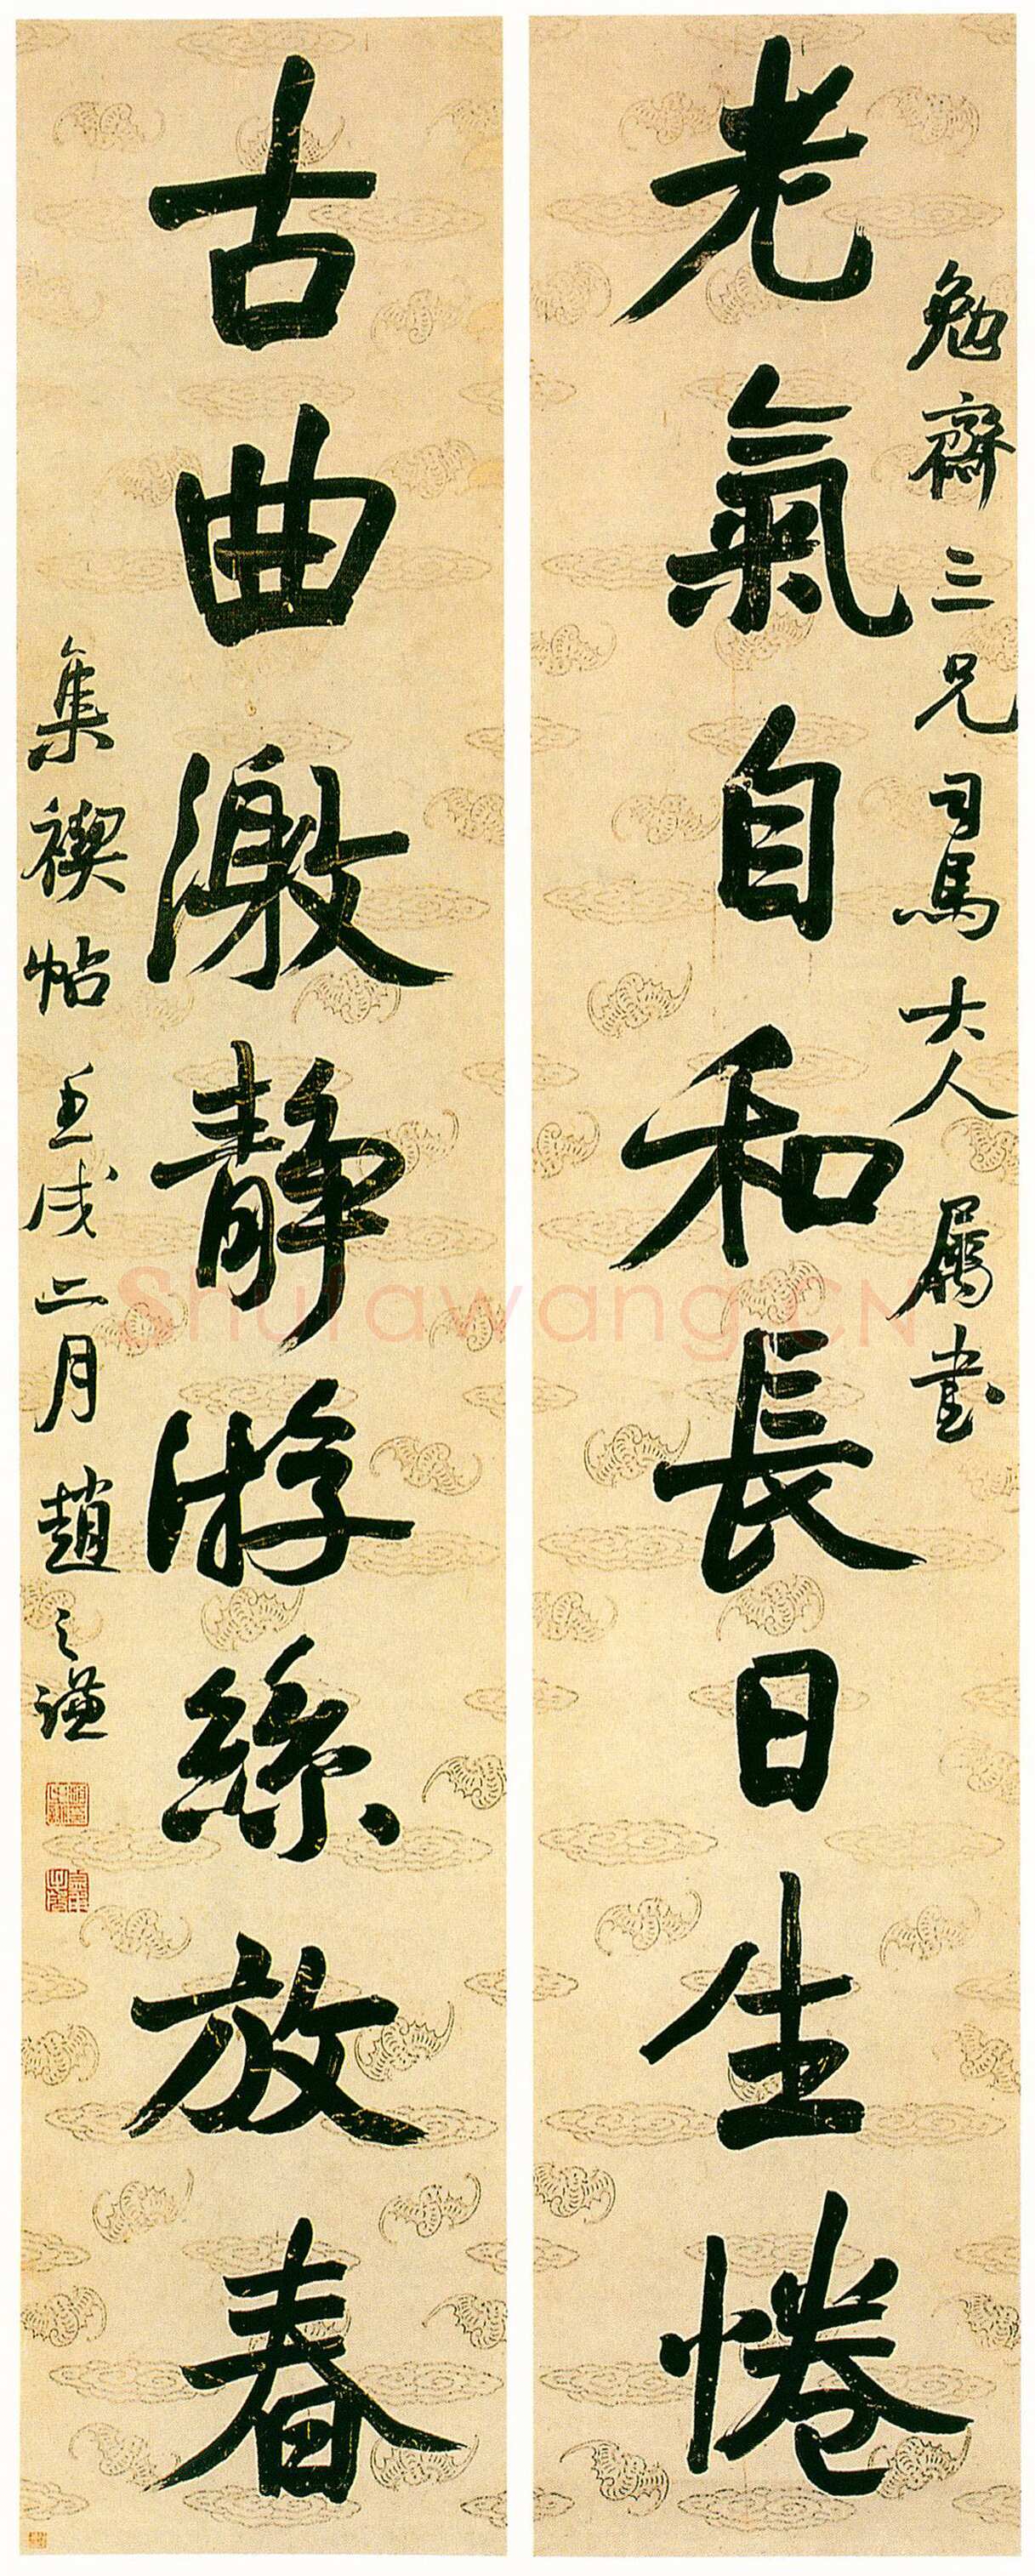 勉齋三兄司馬大人屬書
老氣自和長日生惓
古曲激靜游絲放春
集禊帖壬戌二月趙之謙
Shufawang.CN